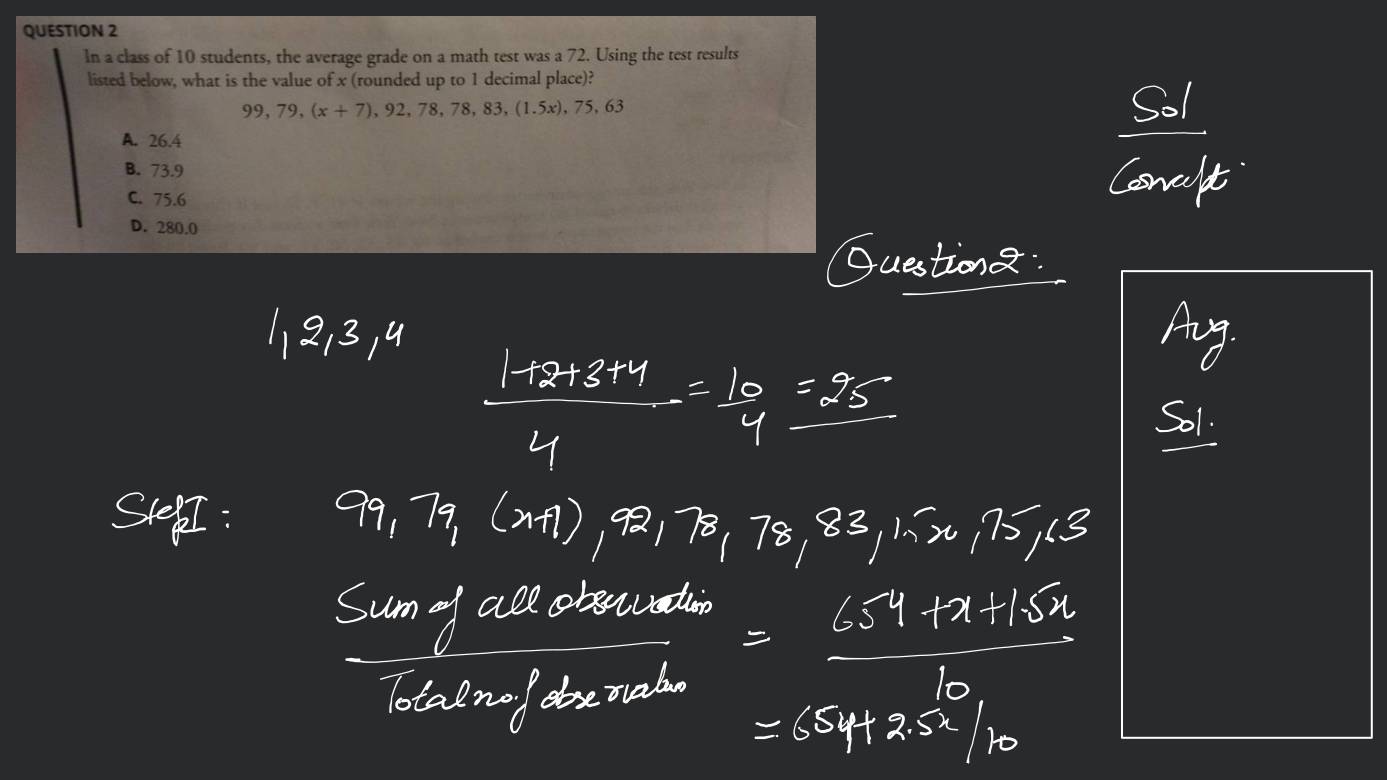 QUESTION 2
In a class of 10 students, the average grade on a math test was a 72. Using the test results
listed below, what is the value of x (rounded up to 1 decimal place)?
99, 79, (x + 7), 92, 78, 78, 83, (1.5x), 75, 63
A. 26.4
B. 73.9
C. 75.6
D. 280.0
Sol
Concept
Question 2:
Avg.
Sol.
1, 2, 3, 4
1+2+3+4 / 4 = 10/4 = 25
Step I: 99, 79, (x+7), 92, 78, 78, 83, 1.5x, 75, 63
Sum of all observation / Total no. of observation = 654 + x + 1.5x / 10
= 654 + 2.5x / 10